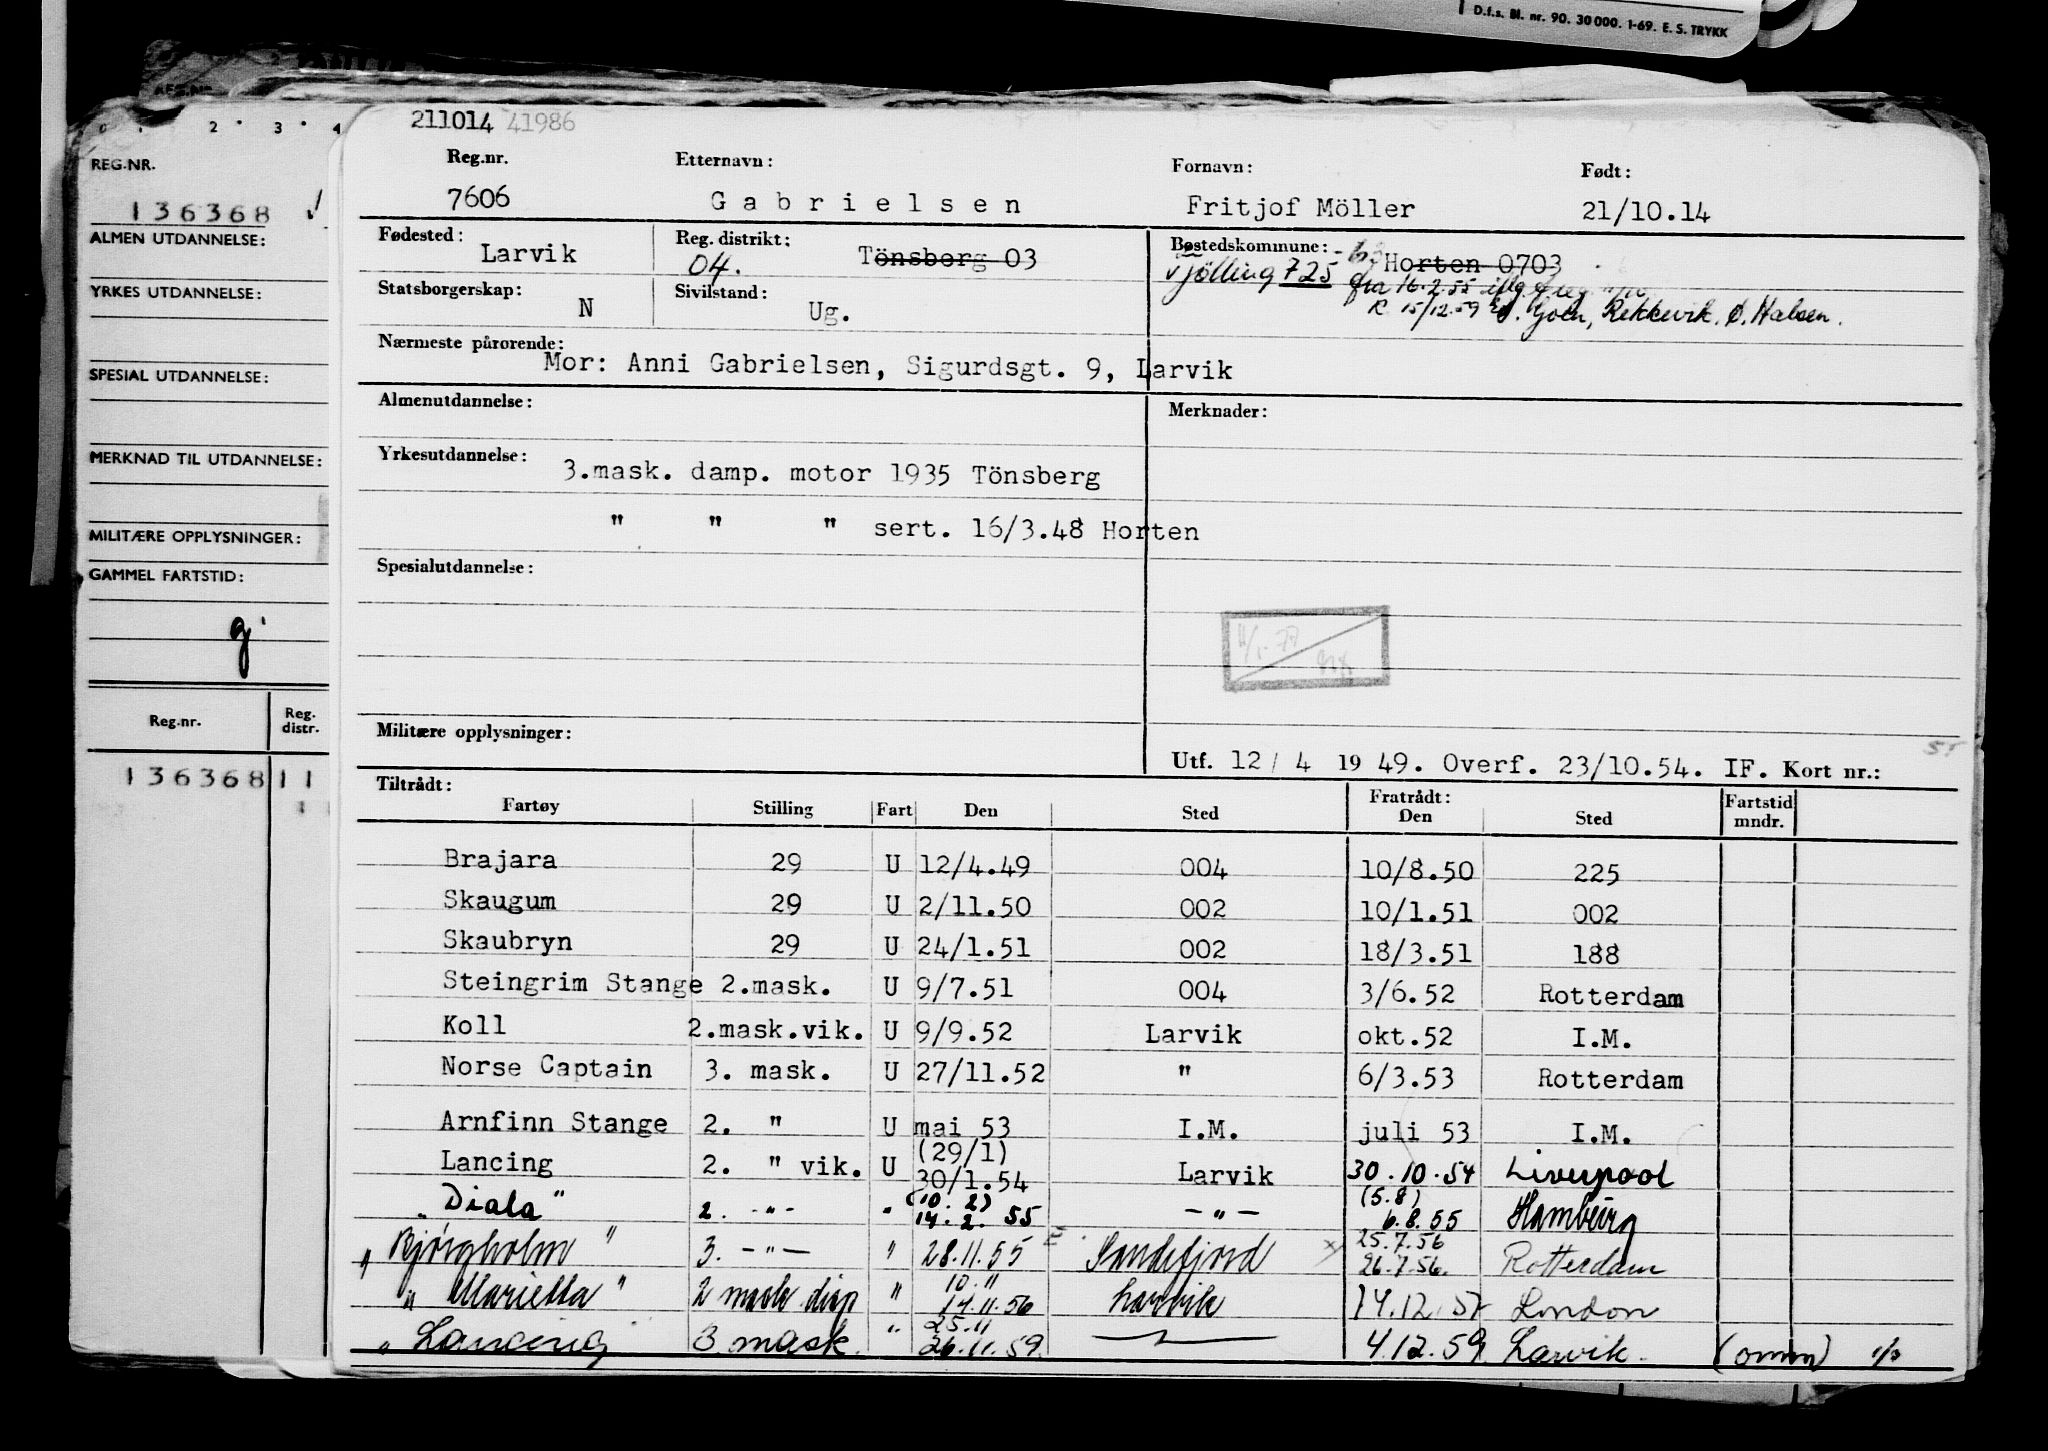 D.f.s. Bl. nr. 90. 30 000. 1-69. E. S. TRYKK
0 . 2 . 3 . 4
REG.NR.
136368
ALMEN UTDANNELSE:
YRKES UTDANNELSE:
SPESIAL UTDANNELSE:
MERKNAD TIL UTDANNELSE:
MILITÆRE OPPLYSNINGER:
GAMMEL FARTSTID:
g.
Reg.nr. Reg. distr.
136368 11
211014 41986
Reg.nr. Etternavn: Fornavn: Født:
7606 Gabrielsen Fritjof Möller 21/10.14
Fødested: Larvik Reg. distrikt: 04. Tönsberg 03 Bostedskommune: Horten 0703
Tjölling 725 fra 16.2.55 iflg.
Statsborgerskap: N Sivilstand: Ug. R 15/12.59 Goen, Rekkevik, Ø. Halsen.
Nærmeste pårørende: Mor: Anni Gabrielsen, Sigurdsgt. 9, Larvik
Almenutdannelse: Merknader:
Yrkesutdannelse: 3.mask. damp. motor 1935 Tönsberg
" " " sert. 16/3.48 Horten
Spesialutdannelse:
Militære opplysninger:
55
Utf. 12/4 1949. Overf. 23/10.54. IF. Kort nr.:
Tiltrådt: Fratrådt:
Fartøy Stilling Fart Den Sted Den Sted Fartstid mndr.
Brajara 29 U 12/4.49 004 10/8.50 225
Skaugum 29 U 2/11.50 002 10/1.51 002
Skaubryn 29 U 24/1.51 002 18/3.51 188
Steingrim Stange 2.mask. U 9/7.51 004 3/6.52 Rotterdam
Koll 2.mask.vik. U 9/9.52 Larvik okt.52 I.M.
Norse Captain 3. mask. U 27/11.52 " 6/3.53 Rotterdam
Arnfinn Stange 2. " U mai 53 I.M. juli 53 I.M.
Lancing 2. " vik. U (29/1) 30/1.54 Larvik 30.10.54 Liverpool
"Diala" 2. -"- " (10.2) 14.2.55 -"- (5.8) 6.8.55 Hamburg
"Bjørgholm" 3. -"- " 28.11.55 Sandefjord 25.7.56 26.7.56. Rotterdam
"Marietta" 2 mask disp " 10.11 14.11.56 Larvik 14.12.57 London
"Lancing" 3 mask. " 25.11 26.11.59. 4.12.59. Larvik.